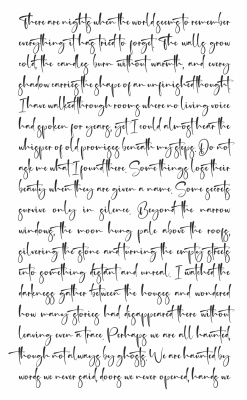 There are nights when the world seems to remember
everything it has tried to forget. The walls grow
cold, the candles burn without warmth, and every
shadow carries the shape of an unfinished thought.
I have walked through rooms where no living voice
had spoken for years, yet I could almost hear the
whisper of old promises beneath my steps. Do not
ask me what I found there. Some things lose their
beauty when they are given a name. Some secrets
survive only in silence. Beyond the narrow
windows, the moon hung pale above the roofs,
silvering the stone and turning the empty streets
into something distant and unreal. I watched the
darkness gather between the houses and wondered
how many stories had disappeared there without
leaving even a trace. Perhaps we are all haunted,
though not always by ghosts. We are haunted by
words we never said, doors we never opened, hands we